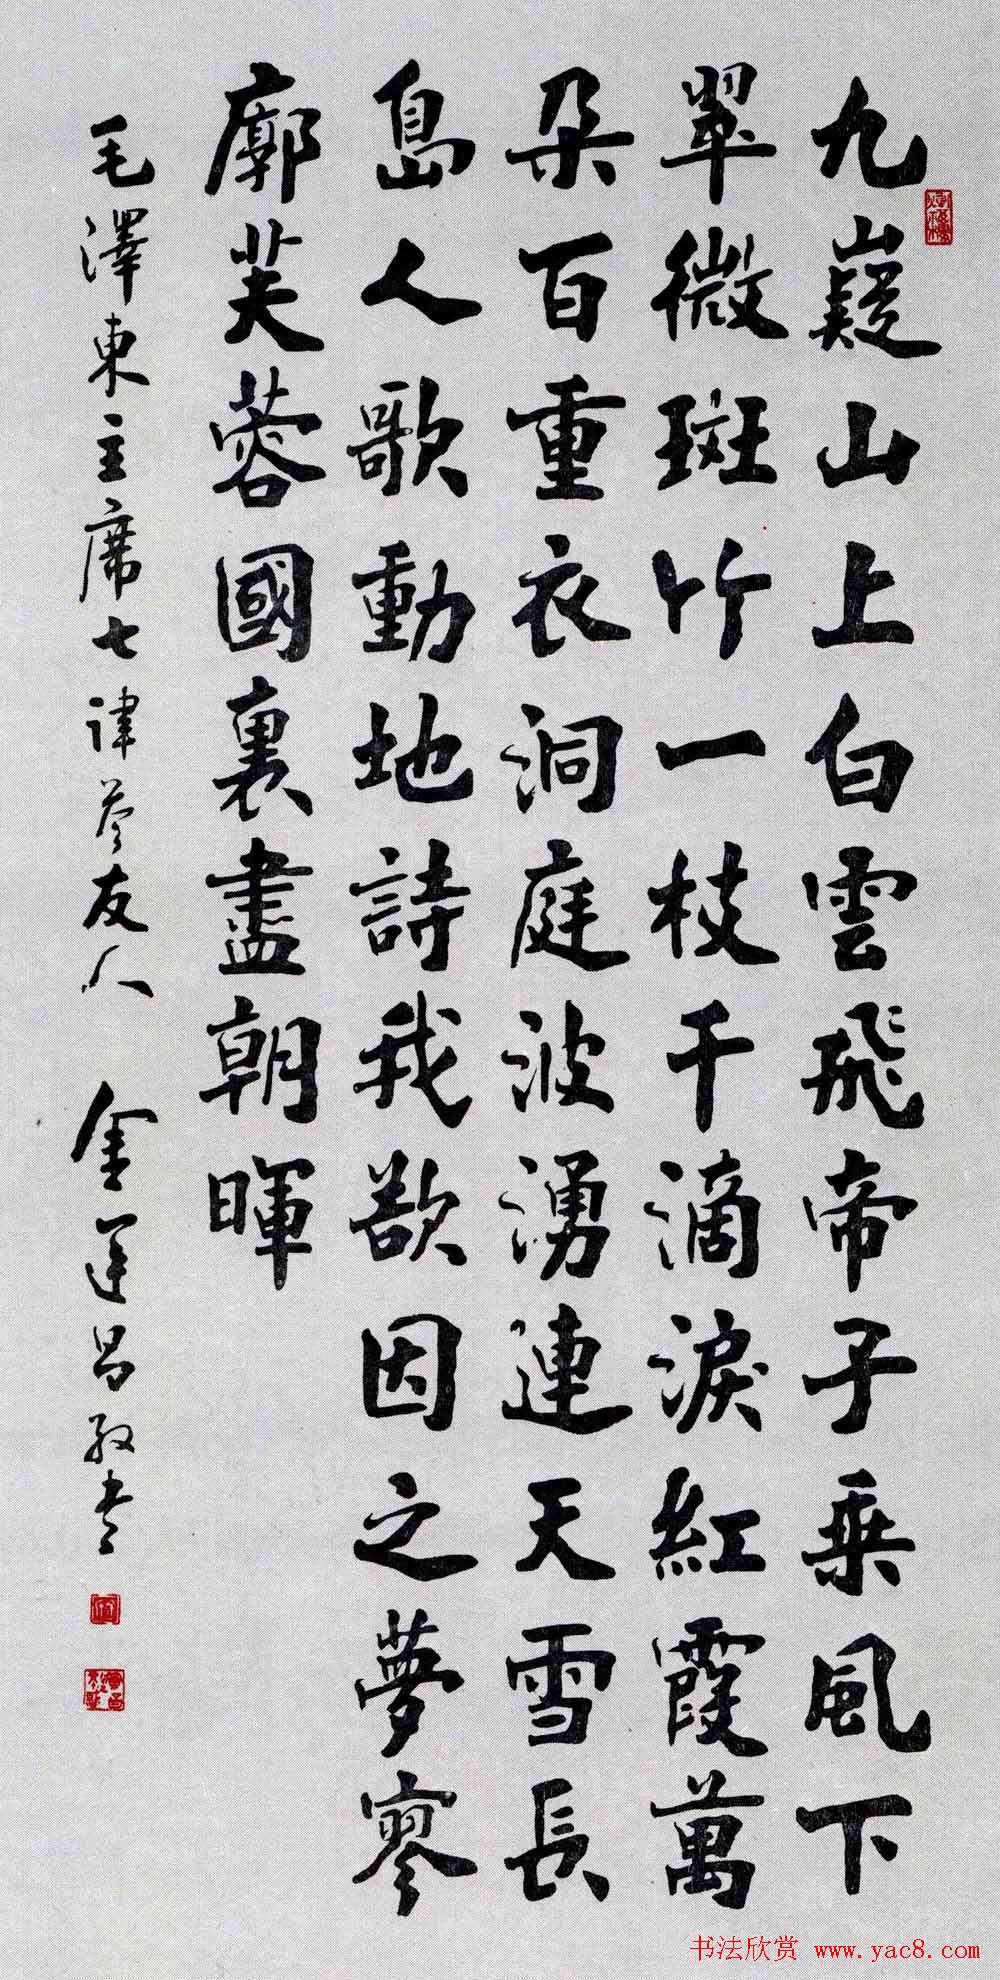 九嶷山上白雲飛帝子乘風下
翠微斑竹一枝千滴淚紅霞萬
朵百重衣洞庭波湧連天雪長
島人歌動地詩我欲因之夢寥
廓芙蓉國裏盡朝暉
毛澤東主席七律答友人 金運昌敬書
书法欣赏 www.yac8.com